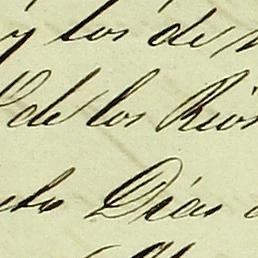 y los de
de los Rios
Dias